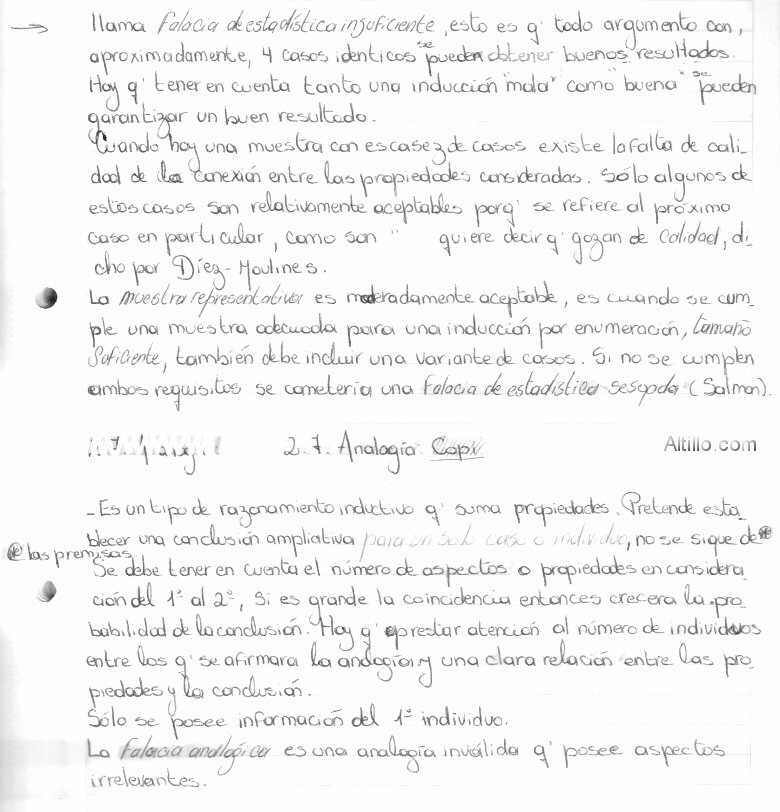 llama falacia de estadística insuficiente, esto es q' todo argumento con,
aproximadamente, 4 casos identicos se pueden obtener buenos resultados.
Hay q' tener en cuenta tanto una inducción "mala" como "buena" se pueden
garantizar un buen resultado.
Cuando hay una muestra con escasez de casos existe la falta de cali-
dad de la conexión entre las propiedades consideradas. Sólo algunos de
estos casos son relativamente aceptables porq' se refiere al próximo
caso en particular, como son " quiere decir q' gozan de calidad, di-
cho por Díez-Moulines.
La muestra representativa es moderadamente aceptable, es cuando se cum-
ple una muestra adecuada para una inducción por enumeración, tamaño
suficiente, también debe incluir una variante de casos. Si no se cumplen
ambos requisitos se cometería una falacia de estadística sesgada (Salmon).
2.7. Analogía Copi
Altillo.com
- Es un tipo de razonamiento inductivo q' suma propiedades. Pretende esta-
blecer una conclusión ampliativa para un solo caso o individuo, no se sigue de
las premisas
Se debe tener en cuenta el número de aspectos o propiedades en considera
ción del 1º al 2º, si es grande la coincidencia entonces crecera la pro
babilidad de la conclusión. Hay q' aprestar atención al número de individuos
entre los q' se afirmara la analogía y una clara relación entre las pro
piedades y la conclusión.
Sólo se posee información del 1º individuo.
La falacia analógica es una analogía inválida q' posee aspectos
irrelevantes.